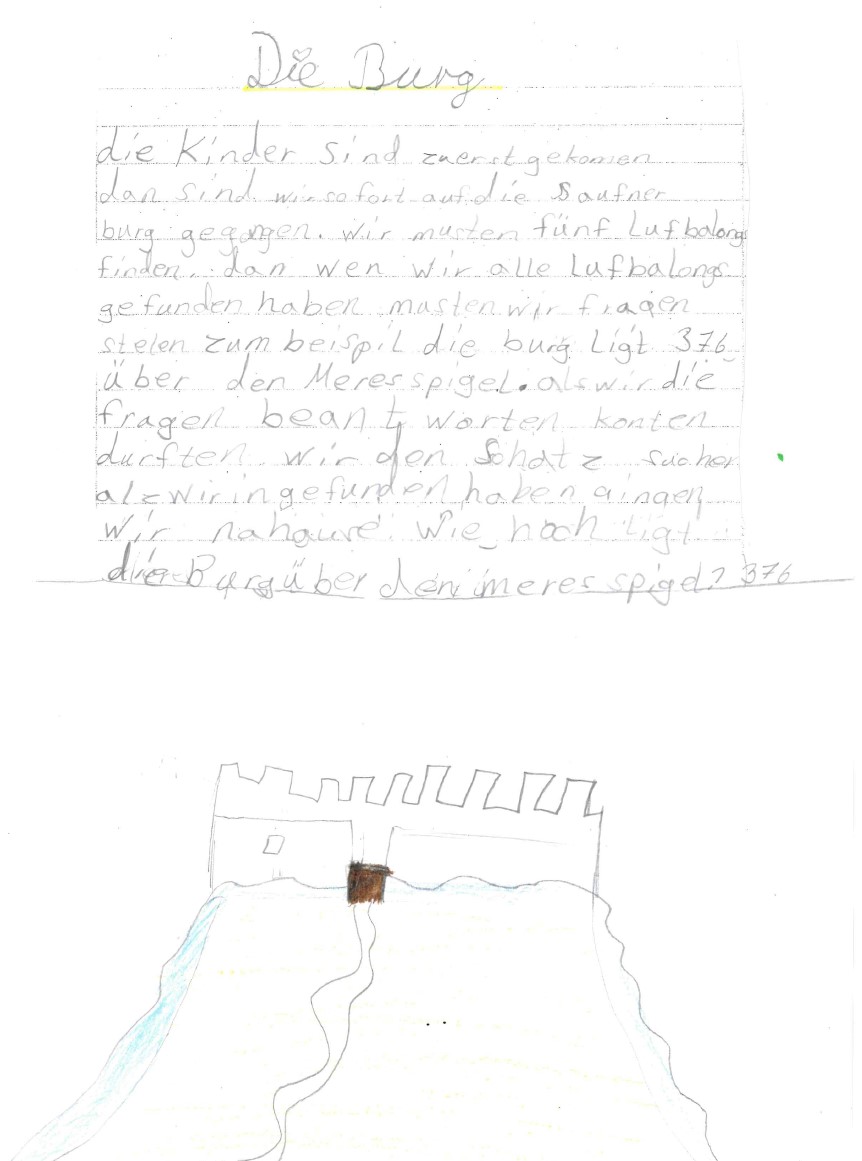 Die Burg
die Kinder sind zuerst gekomen
dan sind wir sofort auf die Saufner
burg gegangen. wir musten fünf Lufbalongs
finden. dan wen wir alle Lufbalongs
gefunden haben musten wir fragen
stelen zum beispil die burg ligt 376
über den Meresspigel. als wir die
fragen beant worten konten
durften wir den Schatz suchen
als wir in gefunden haben gingen
wir nahause. Wie hoch ligt
die Burg über den meres spigel? 376